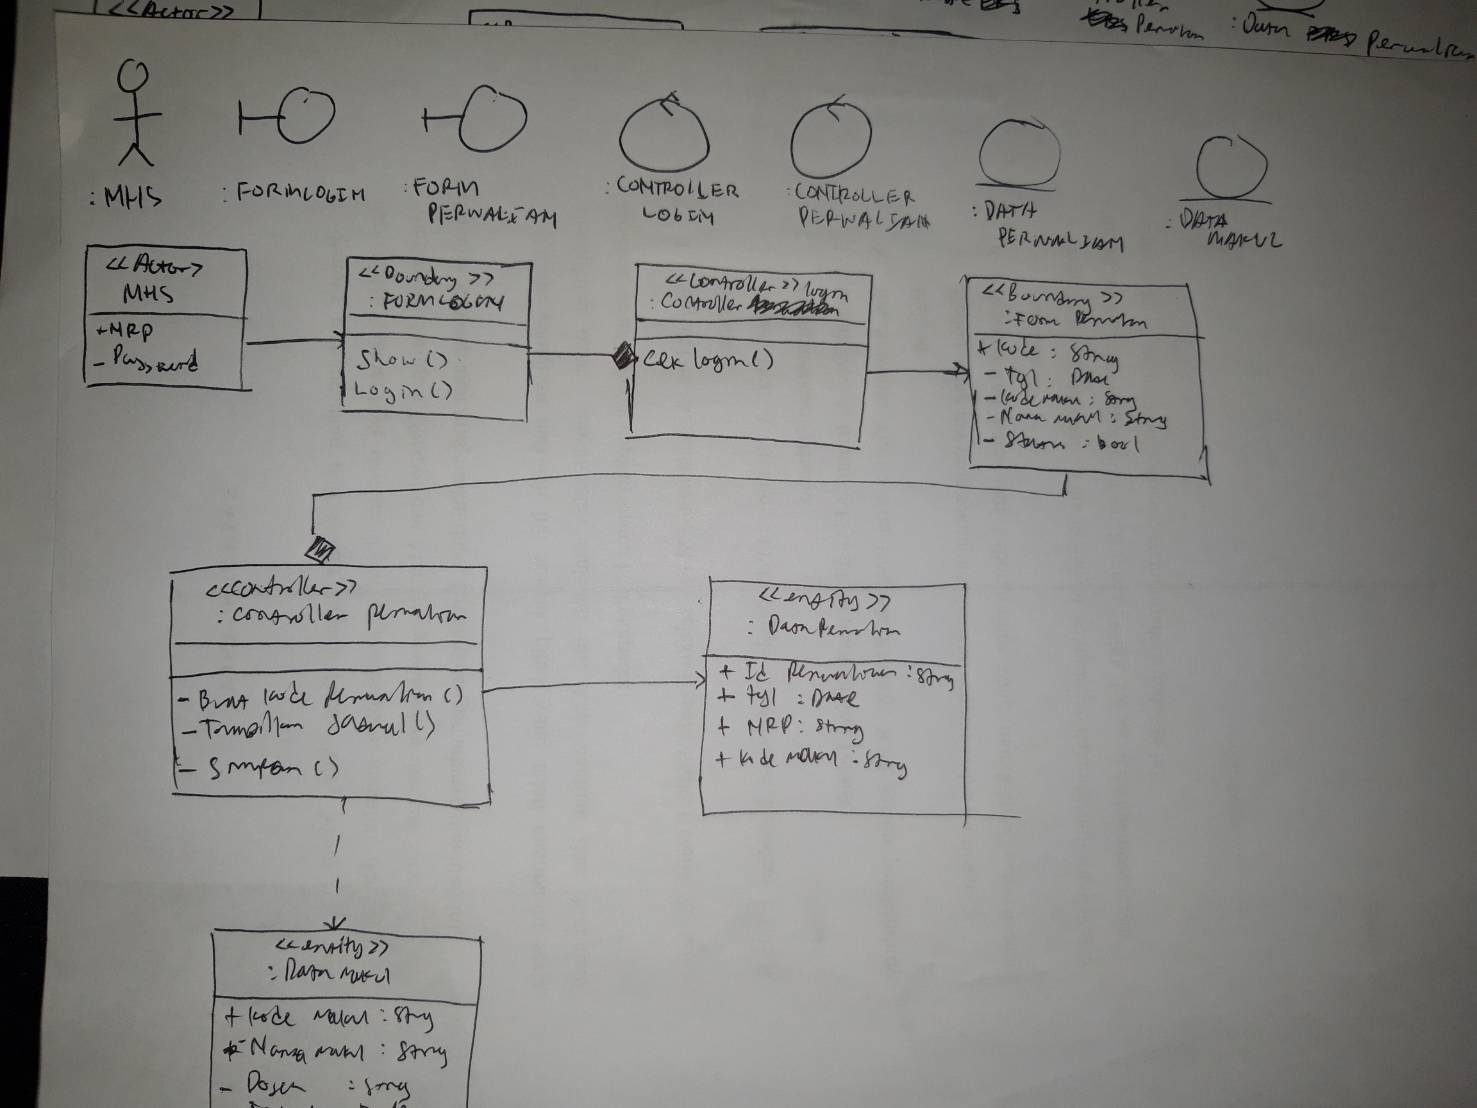 <<Actor>>
Perwalian
: Data Perwalian
: MHS
: FORMLOGIN
: FORM
PERWALIAN
: CONTROLLER
LOGIN
: CONTROLLER
PERWALIAN
: DATA
PERWALIAN
: DATA
MAKUL
<<Actor>
MHS
+NRP
- Password
<<Boundary>>
: FORMLOGIN
Show()
Login()
<<Controller>> login
: Controller
Cek login()
<<Boundary>>
: Form Perwalian
+ Kode : String
- Tgl : Date
- Kode makul : String
- Nama makul : String
- Status : bool
<<controller>>
: controller perwalian
- Buat kode perwalian()
- Tampilkan Jadwal()
- Simpan()
<<entity>>
: Data Perwalian
+ Id Perwalian : String
+ tgl : Date
+ NRP : String
+ kode makul : String
<<entity>>
: Data makul
+ kode makul : String
- Nama makul : String
- Dosen : String